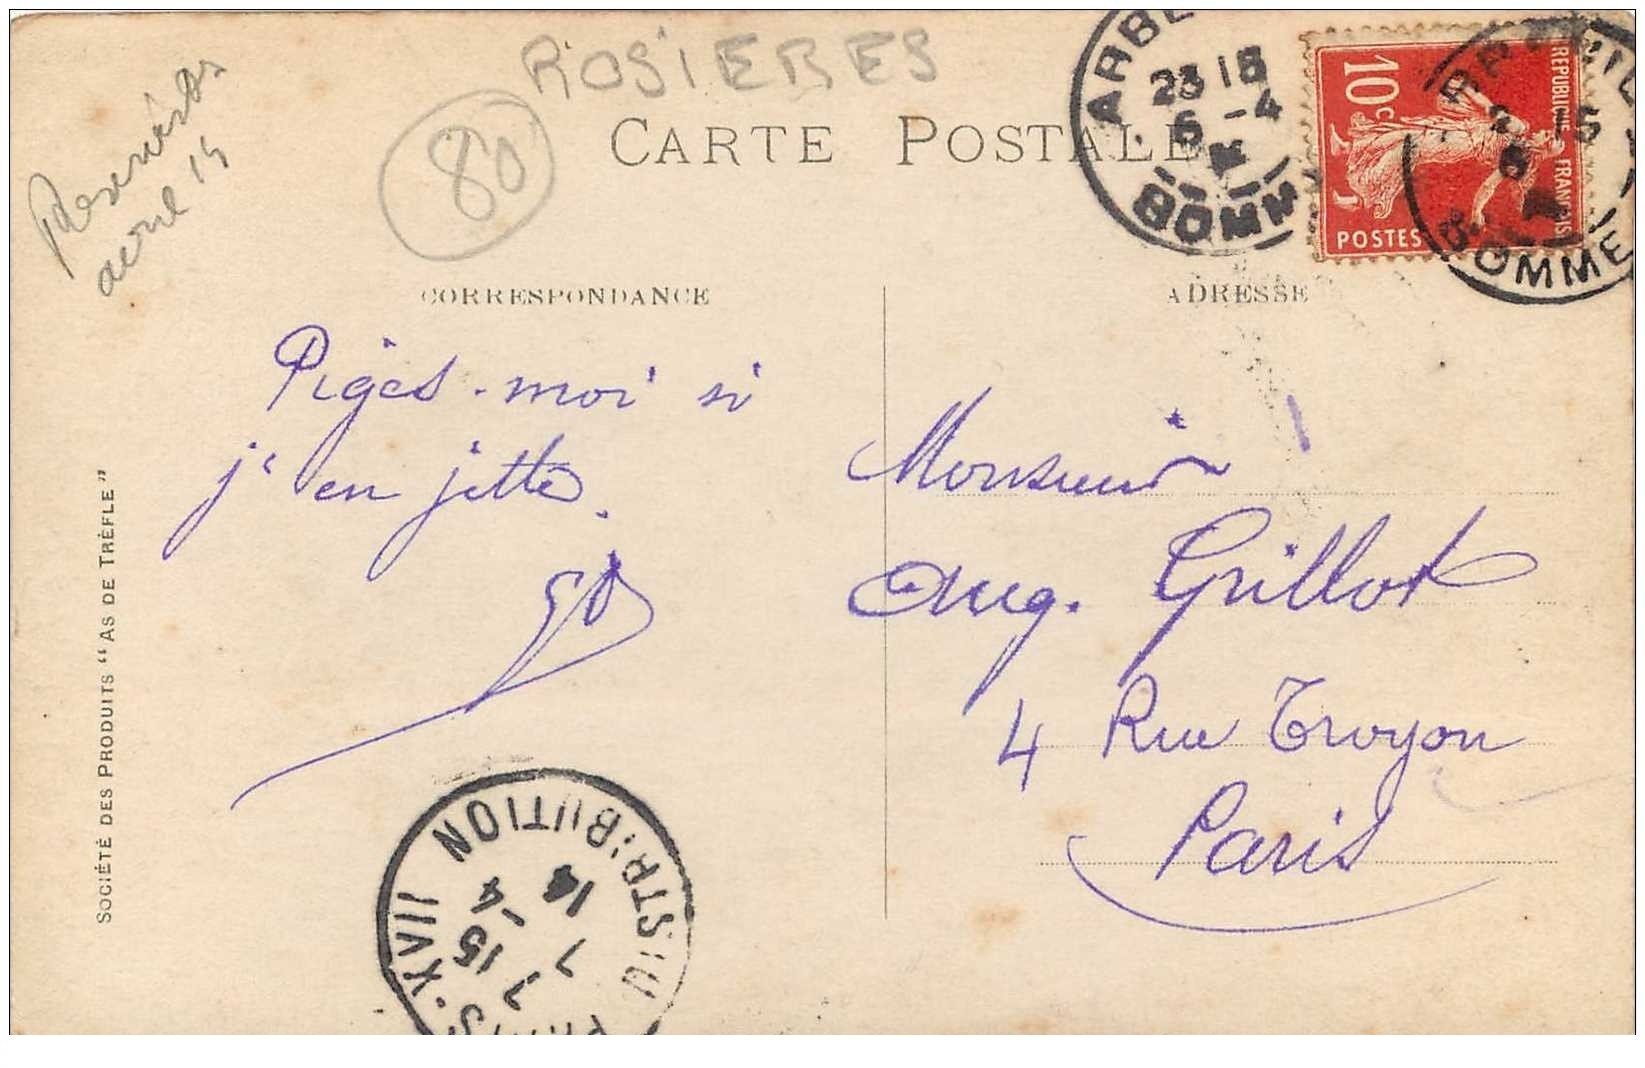 ROSIERES
80
avril 14
CARTE POSTALE
CORRESPONDANCE
ADRESSE
23 15
6 -4
SOMME
10c
REPUBLIQUE FRANÇAISE
POSTES
SOMME
Piges-moi si
j'en jette.
Monsieur
Aug. Grillot
4 Rue Troyon
Paris
SOCIÉTÉ DES PRODUITS "AS DE TRÈFLE"
PARIS · XVII DISTRIBUTION
7 15
7 -4
14